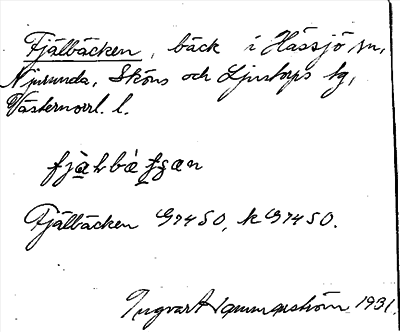 Fjälbäcken, bäck i Hässjö sn,
Njurunda, Sköns och Ljustorps tg,
Västernorrl. l.
Fjälbäcken G74SO, k G74SO.
Ingvar Hammarström 1931.